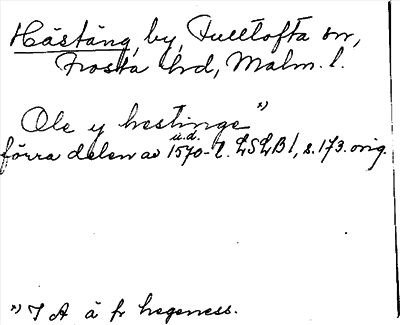 Hästäng, by, Fulltofta sn,
Frosta hd, Malm. l.
Ole y hestinge")
u.d.
förra delen av 1570-t. LSLB 1, s. 173. orig.
") I A ä fr hegeness.